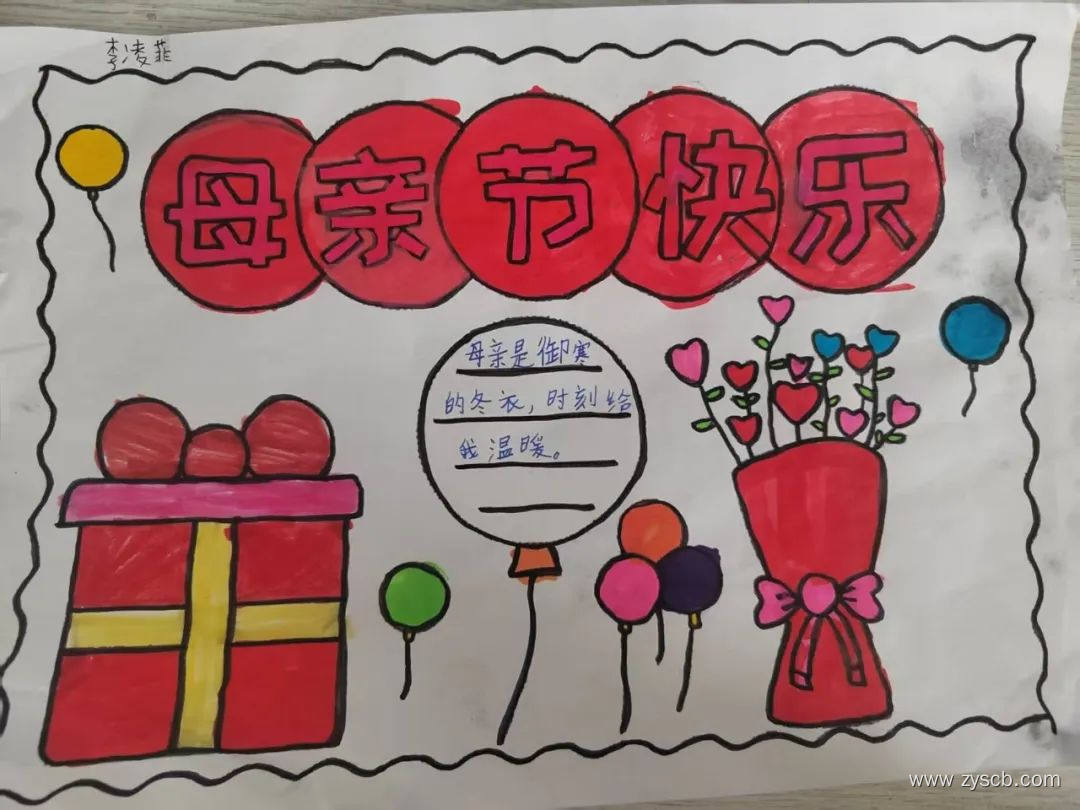 李凌菲
母亲节快乐
母亲是御寒
的冬衣，时刻给
我温暖。
www.zyscb.com